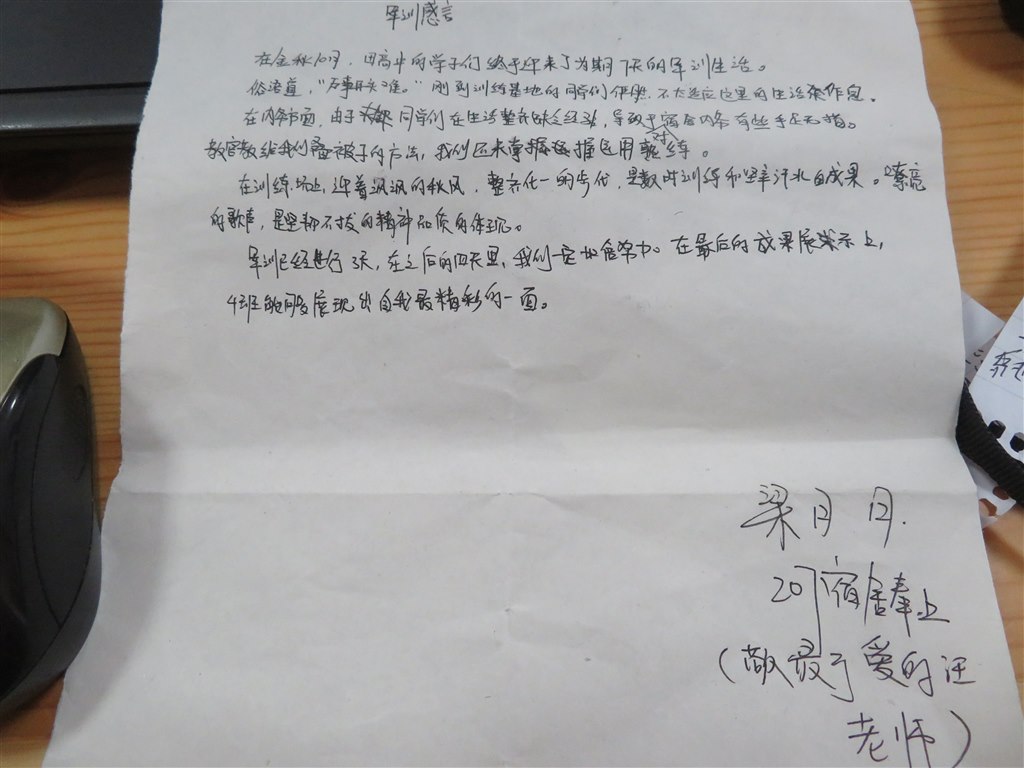 军训感言
在金秋10月,田高中的学子们终于迎来了为期7天的军训生活。
俗语道,"万事开头难。"刚到训练基地的同学们俨然不太适应这里的生活和作息。
在内务方面,由于大都同学们在生活整理缺乏经验,导致于宿舍内务有些手足无措。
教官教给我们叠被子的方法,我们还未掌握 运用 练。
在训练场上,迎着飒飒的秋风,整齐化一的步伐,是数时训练和坚辛汗水的成果。嘹亮
的歌声,是坚韧不拔的精神品质的体现。
军训已经进行3天,在之后的四天里,我们一定加倍努力。在最后的成果展示上,
4班能够展现出自我最精彩的一面。
梁月月.
207宿舍奉上
(敬最可爱的汪
老师)